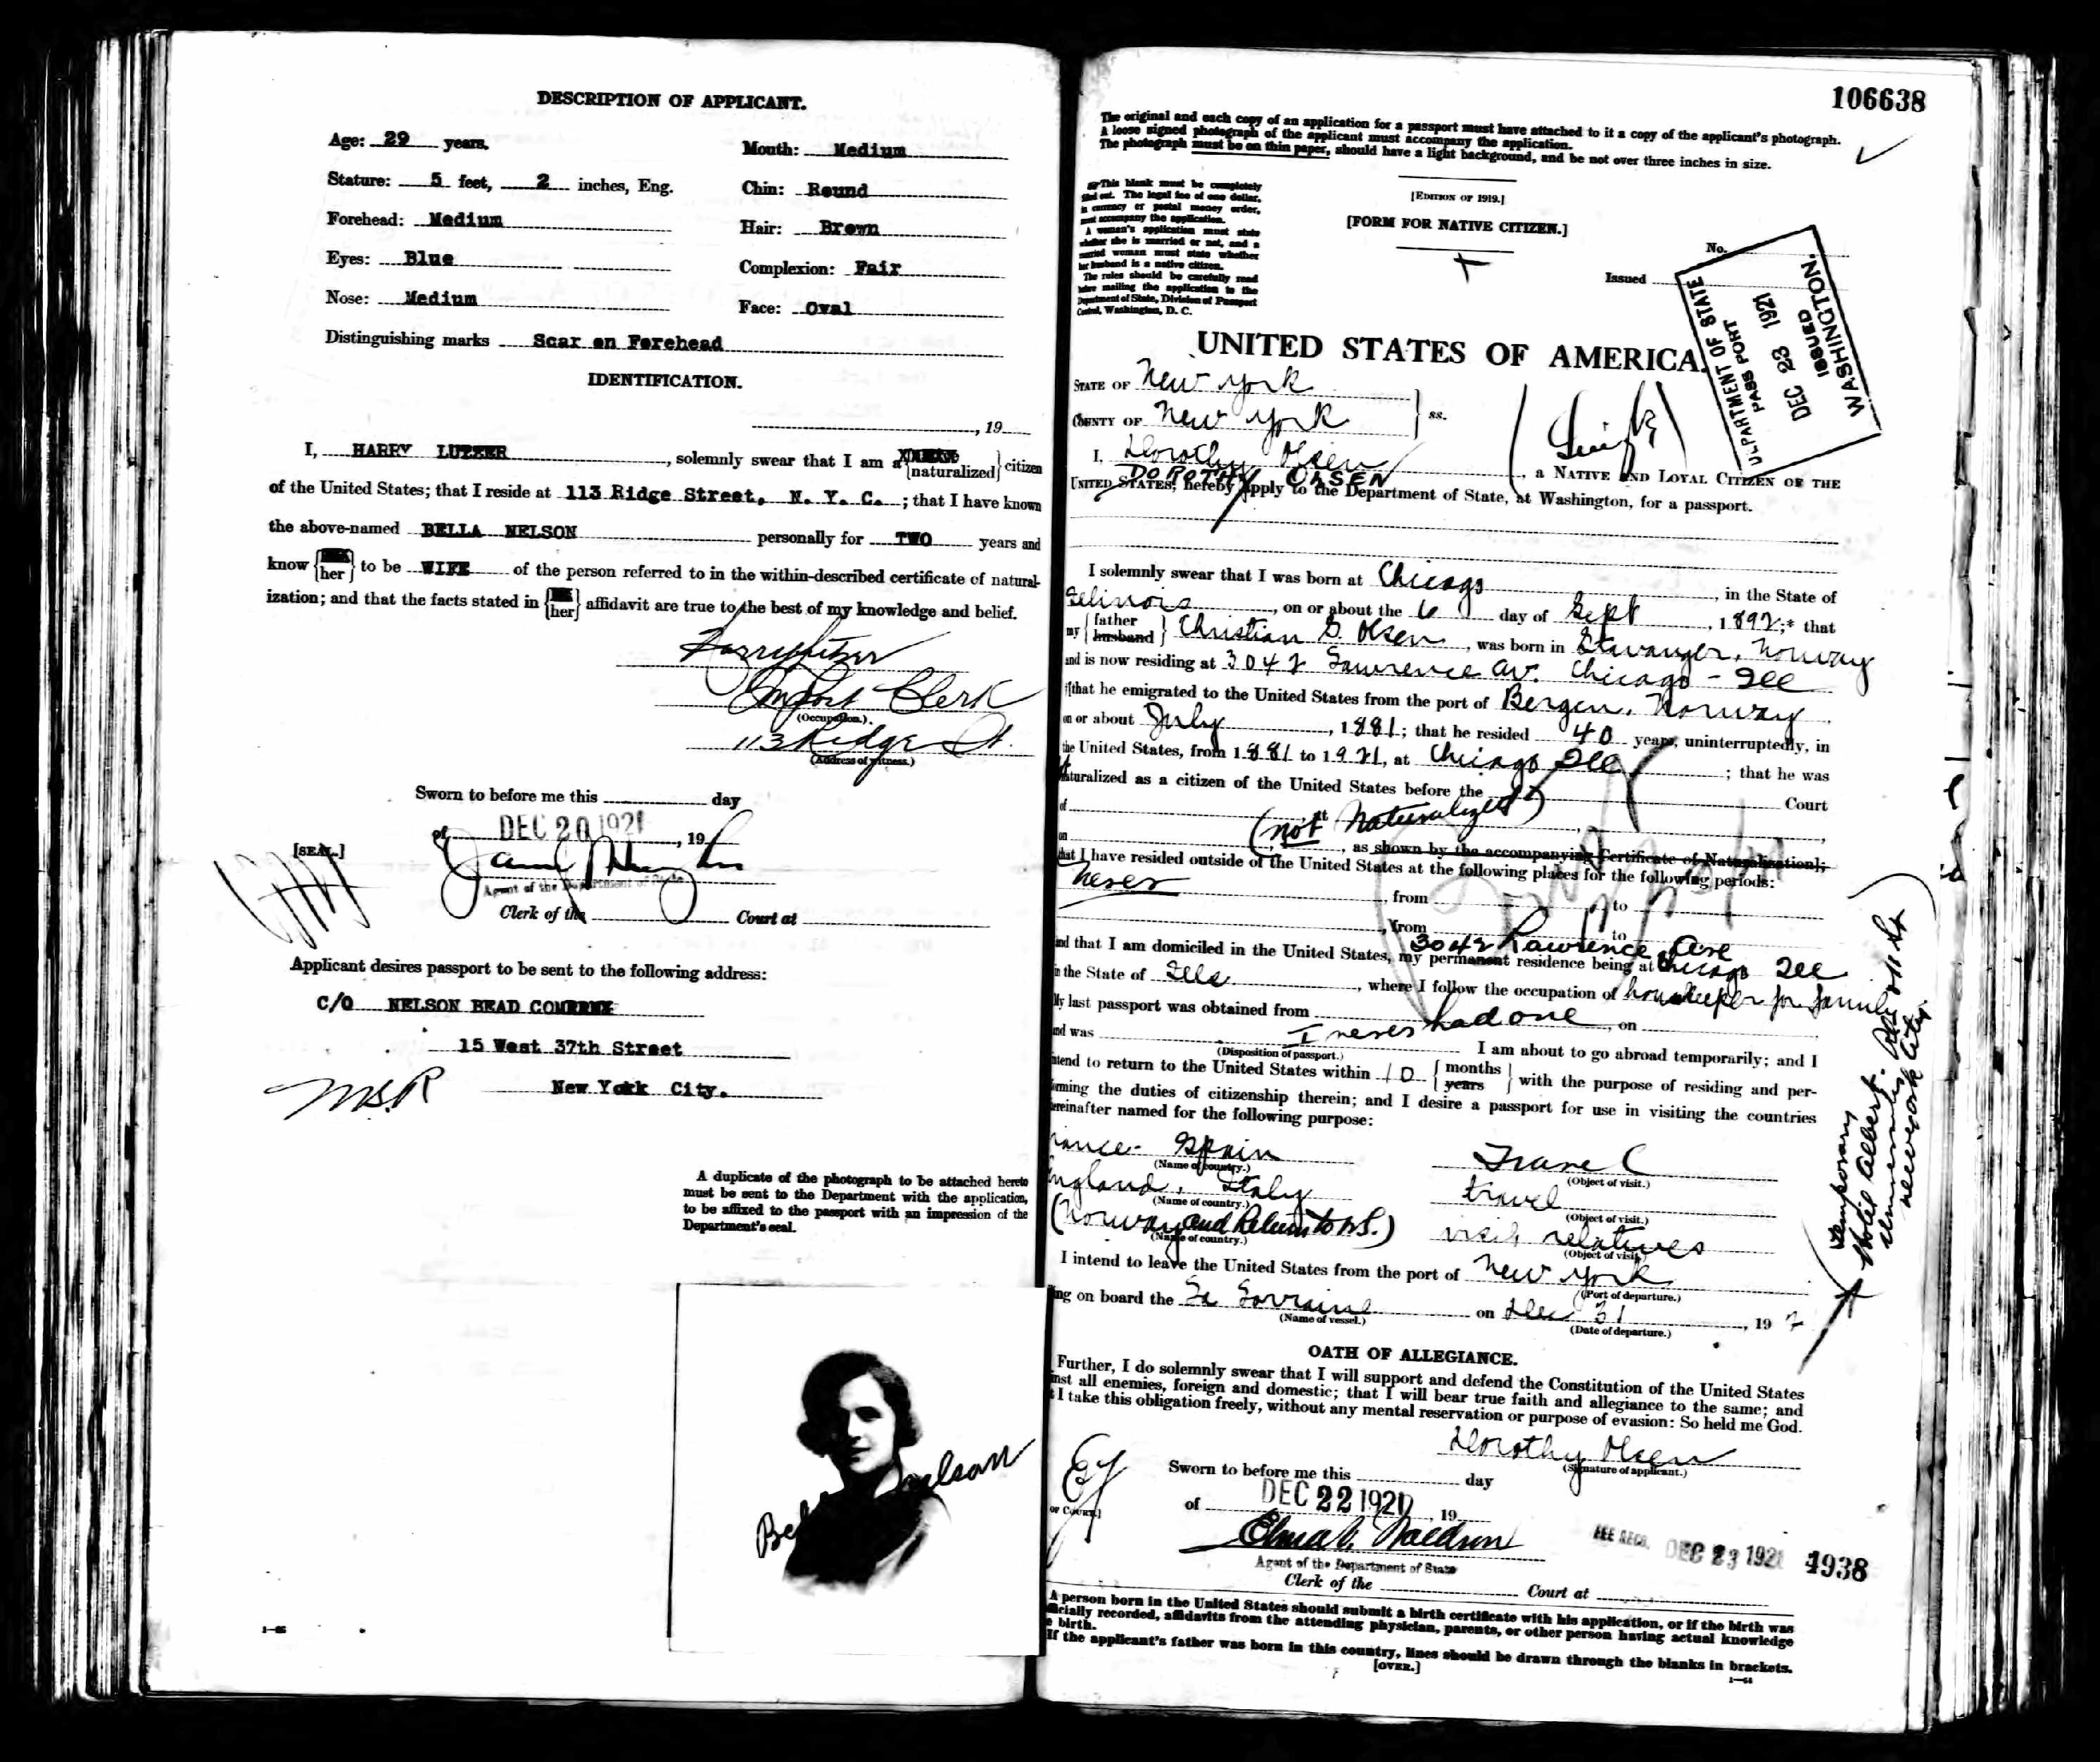 DESCRIPTION OF APPLICANT.
Age: 29 years.
Mouth: Medium
Stature: 5 feet, 2 inches, Eng.
Chin: Round
Forehead: Medium
Hair: Brown
Eyes: Blue
Complexion: Fair
Nose: Medium
Face: Oval
Distinguishing marks Scar on Forehead
IDENTIFICATION.
, 19
I, HARRY LUTZER, solemnly swear that I am a {naturalized} citizen
of the United States; that I reside at 113 Ridge Street, N. Y. C.; that I have known
the above-named BELLA NELSON personally for TWO years and
know {her} to be WIFE of the person referred to in the within-described certificate of natural-
ization; and that the facts stated in {her} affidavit are true to the best of my knowledge and belief.
Clerk
(Occupation.)
113 Ridge St.
(Address of witness.)
Sworn to before me this day
of DEC 20 1921, 19
[SEAL.]
Agent of the Department of State
Clerk of the Court at
Applicant desires passport to be sent to the following address:
C/O NELSON BEAD COMPANY
15 West 37th Street
New York City.
MSR
A duplicate of the photograph to be attached hereto
must be sent to the Department with the application,
to be affixed to the passport with an impression of the
Department's seal.
Nelson
106638
The original and each copy of an application for a passport must have attached to it a copy of the applicant's photograph.
A loose signed photograph of the applicant must accompany the application.
The photograph must be on thin paper, should have a light background, and be not over three inches in size.
This blank must be completely
filled out. The legal fee of one dollar,
in currency or postal money order,
must accompany the application.
A woman's application must state
whether she is married or not, and a
married woman must state whether
her husband is a native citizen.
The rules should be carefully read
before mailing the application to the
Department of State, Division of Passport
Control, Washington, D. C.
[EDITION OF 1919.]
[FORM FOR NATIVE CITIZEN.]
No.
Issued
DEPARTMENT OF STATE
PASSPORT
DEC 23 1921
ISSUED
WASHINGTON.
UNITED STATES OF AMERICA.
STATE OF New York
COUNTY OF New York } ss.
I, Dorothy Olsen, a NATIVE AND LOYAL CITIZEN OF THE
DOROTHY OLSEN
UNITED STATES, hereby apply to the Department of State, at Washington, for a passport.
I solemnly swear that I was born at Chicago, in the State of
Illinois, on or about the 6 day of Sept, 1892;* that
my {father husband} Christian G. Olsen, was born in Stavanger, Norway
and is now residing at 3042 Lawrence Av. Chicago - Ill
[that he emigrated to the United States from the port of Bergen, Norway
on or about July, 1881; that he resided 40 years, uninterruptedly, in
the United States, from 1881 to 1921, at Chicago Ill; that he was
naturalized as a citizen of the United States before the Court
of
(not Naturalized)
on , as shown by the accompanying Certificate of Naturalization];
that I have resided outside of the United States at the following places for the following periods:
never, from to
, from to
and that I am domiciled in the United States, my permanent residence being at 3042 Lawrence Ave Chicago Ill
in the State of Ills, where I follow the occupation of housekeeper for family
My last passport was obtained from I never had one, on
and was
(Disposition of passport.)
I am about to go abroad temporarily; and I
intend to return to the United States within 10 {months years} with the purpose of residing and per-
forming the duties of citizenship therein; and I desire a passport for use in visiting the countries
hereinafter named for the following purpose:
France - Spain
(Name of country.)
Travel
(Object of visit.)
England, Italy
(Name of country.)
travel
(Object of visit.)
(Norway and Return to U.S.)
(Name of country.)
visit relatives
(Object of visit.)
I intend to leave the United States from the port of New York
(Port of departure.)
sailing on board the La Lorraine on Dec 31, 192
(Name of vessel.)
(Date of departure.)
temporary
Hotel Albert.
New York City
OATH OF ALLEGIANCE.
Further, I do solemnly swear that I will support and defend the Constitution of the United States
against all enemies, foreign and domestic; that I will bear true faith and allegiance to the same; and
that I take this obligation freely, without any mental reservation or purpose of evasion: So held me God.
Dorothy Olsen
(Signature of applicant.)
Sworn to before me this day
of DEC 22 1921, 19
Agent of the Department of State
Clerk of the Court at
FEE RECD. DEC 23 1921 4938
A person born in the United States should submit a birth certificate with his application, or if the birth was
officially recorded, affidavits from the attending physician, parents, or other person having actual knowledge
of birth.
If the applicant's father was born in this country, lines should be drawn through the blanks in brackets.
[OVER.]